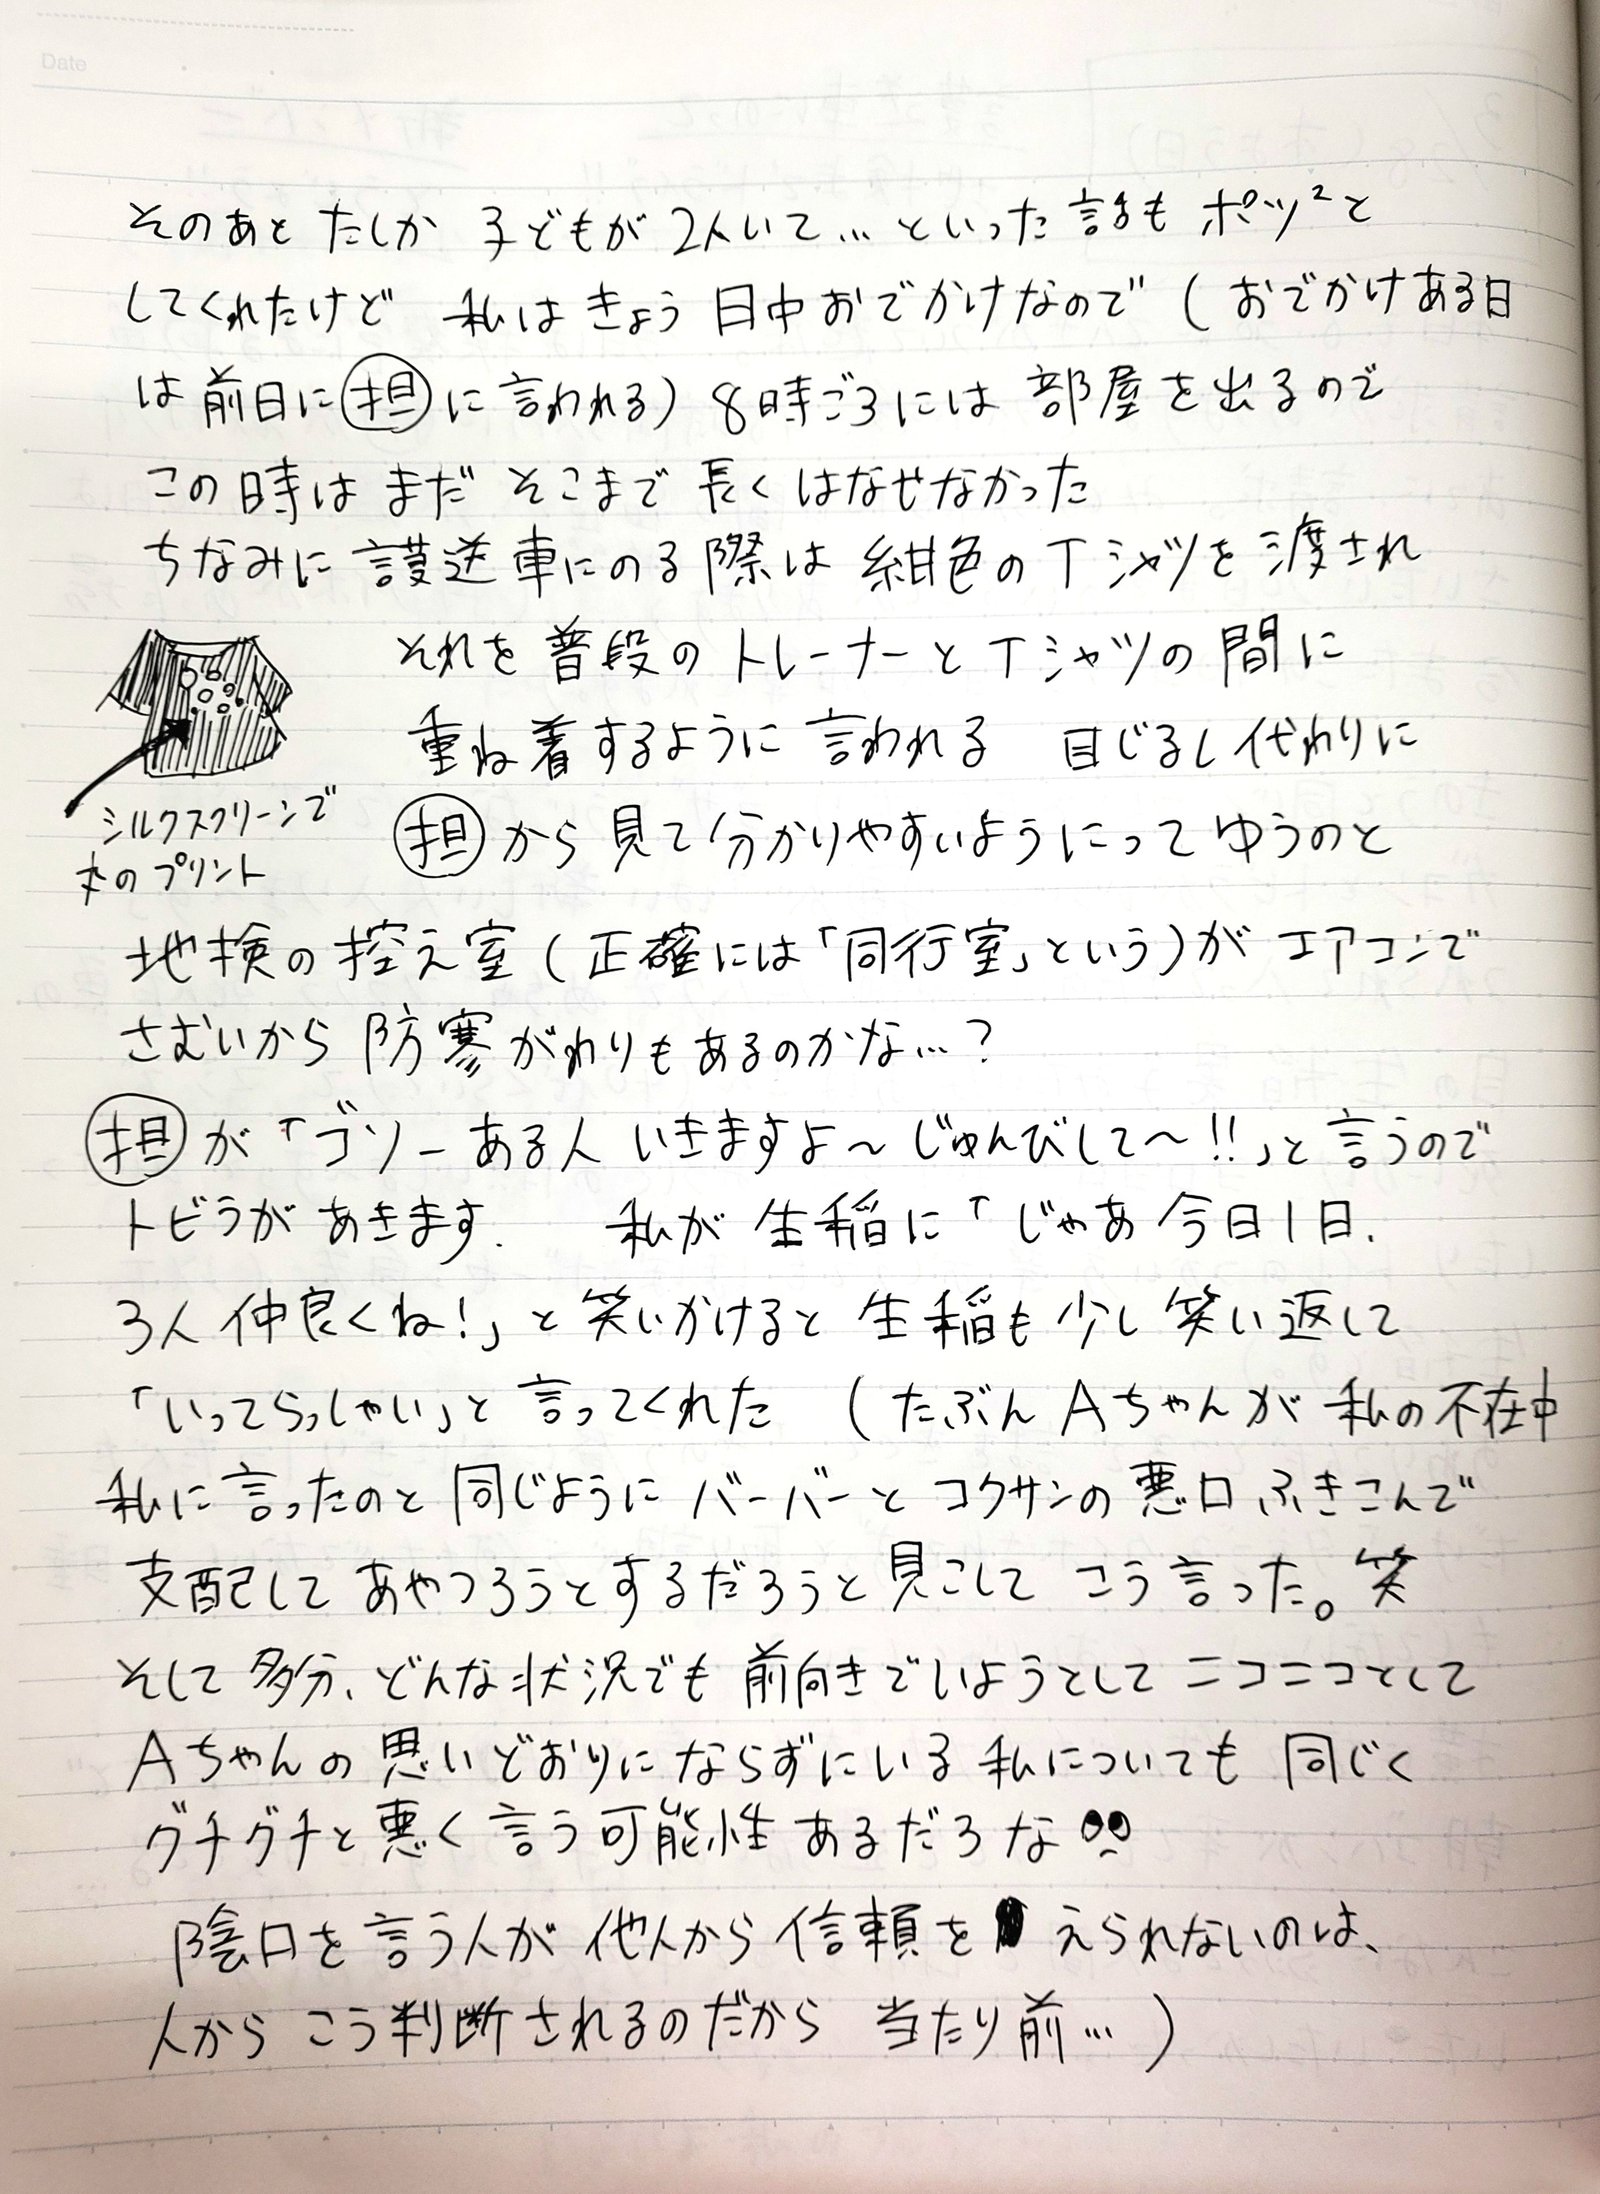 Date
そのあと たしか 子どもが 2人いて… といった 話も ポツ²と
してくれたけど 私は きょう 日中おでかけなので (おでかけある日
は 前日に 担 に 言われる) 8時ごろには 部屋を出るので
この時は まだ そこまで 長く はなせなかった
ちなみに 護送車にのる際は 紺色のTシャツを 渡され
それを 普段のトレーナーとTシャツの 間に
重ね着するように 言われる 目じるし代わりに
担 から 見て 分かりやすいようにって ゆうのと
シルクスクリーンで
丸のプリント
地検の控え室 (正確には「同行室」という)が エアコンで
さむいから 防寒がわりもあるのかな…?
担 が 「ゴソーある人 いきますよ〜 じゅんびして〜!!」と 言うので
トビラが あきます. 私が 生稲に「じゃあ 今日1日.
3人 仲良くね!」と 笑いかけると 生稲も 少し 笑い返して
「いってらっしゃい」と 言ってくれた (たぶん Aちゃんが 私の不在中
私に 言ったのと 同じように バーバーと コクサンの 悪口 ふきこんで
支配して あやつろうとするだろうと 見こして こう言った。笑
そして 多分、どんな状況でも 前向きでいようとして ニコニコとして
Aちゃんの 思いどおりにならずにいる 私についても 同じく
グチグチと 悪く 言う 可能性 あるだろな
陰口を 言う人が 他人から 信頼を えられないのは、
人から こう判断されるのだから 当たり前…)